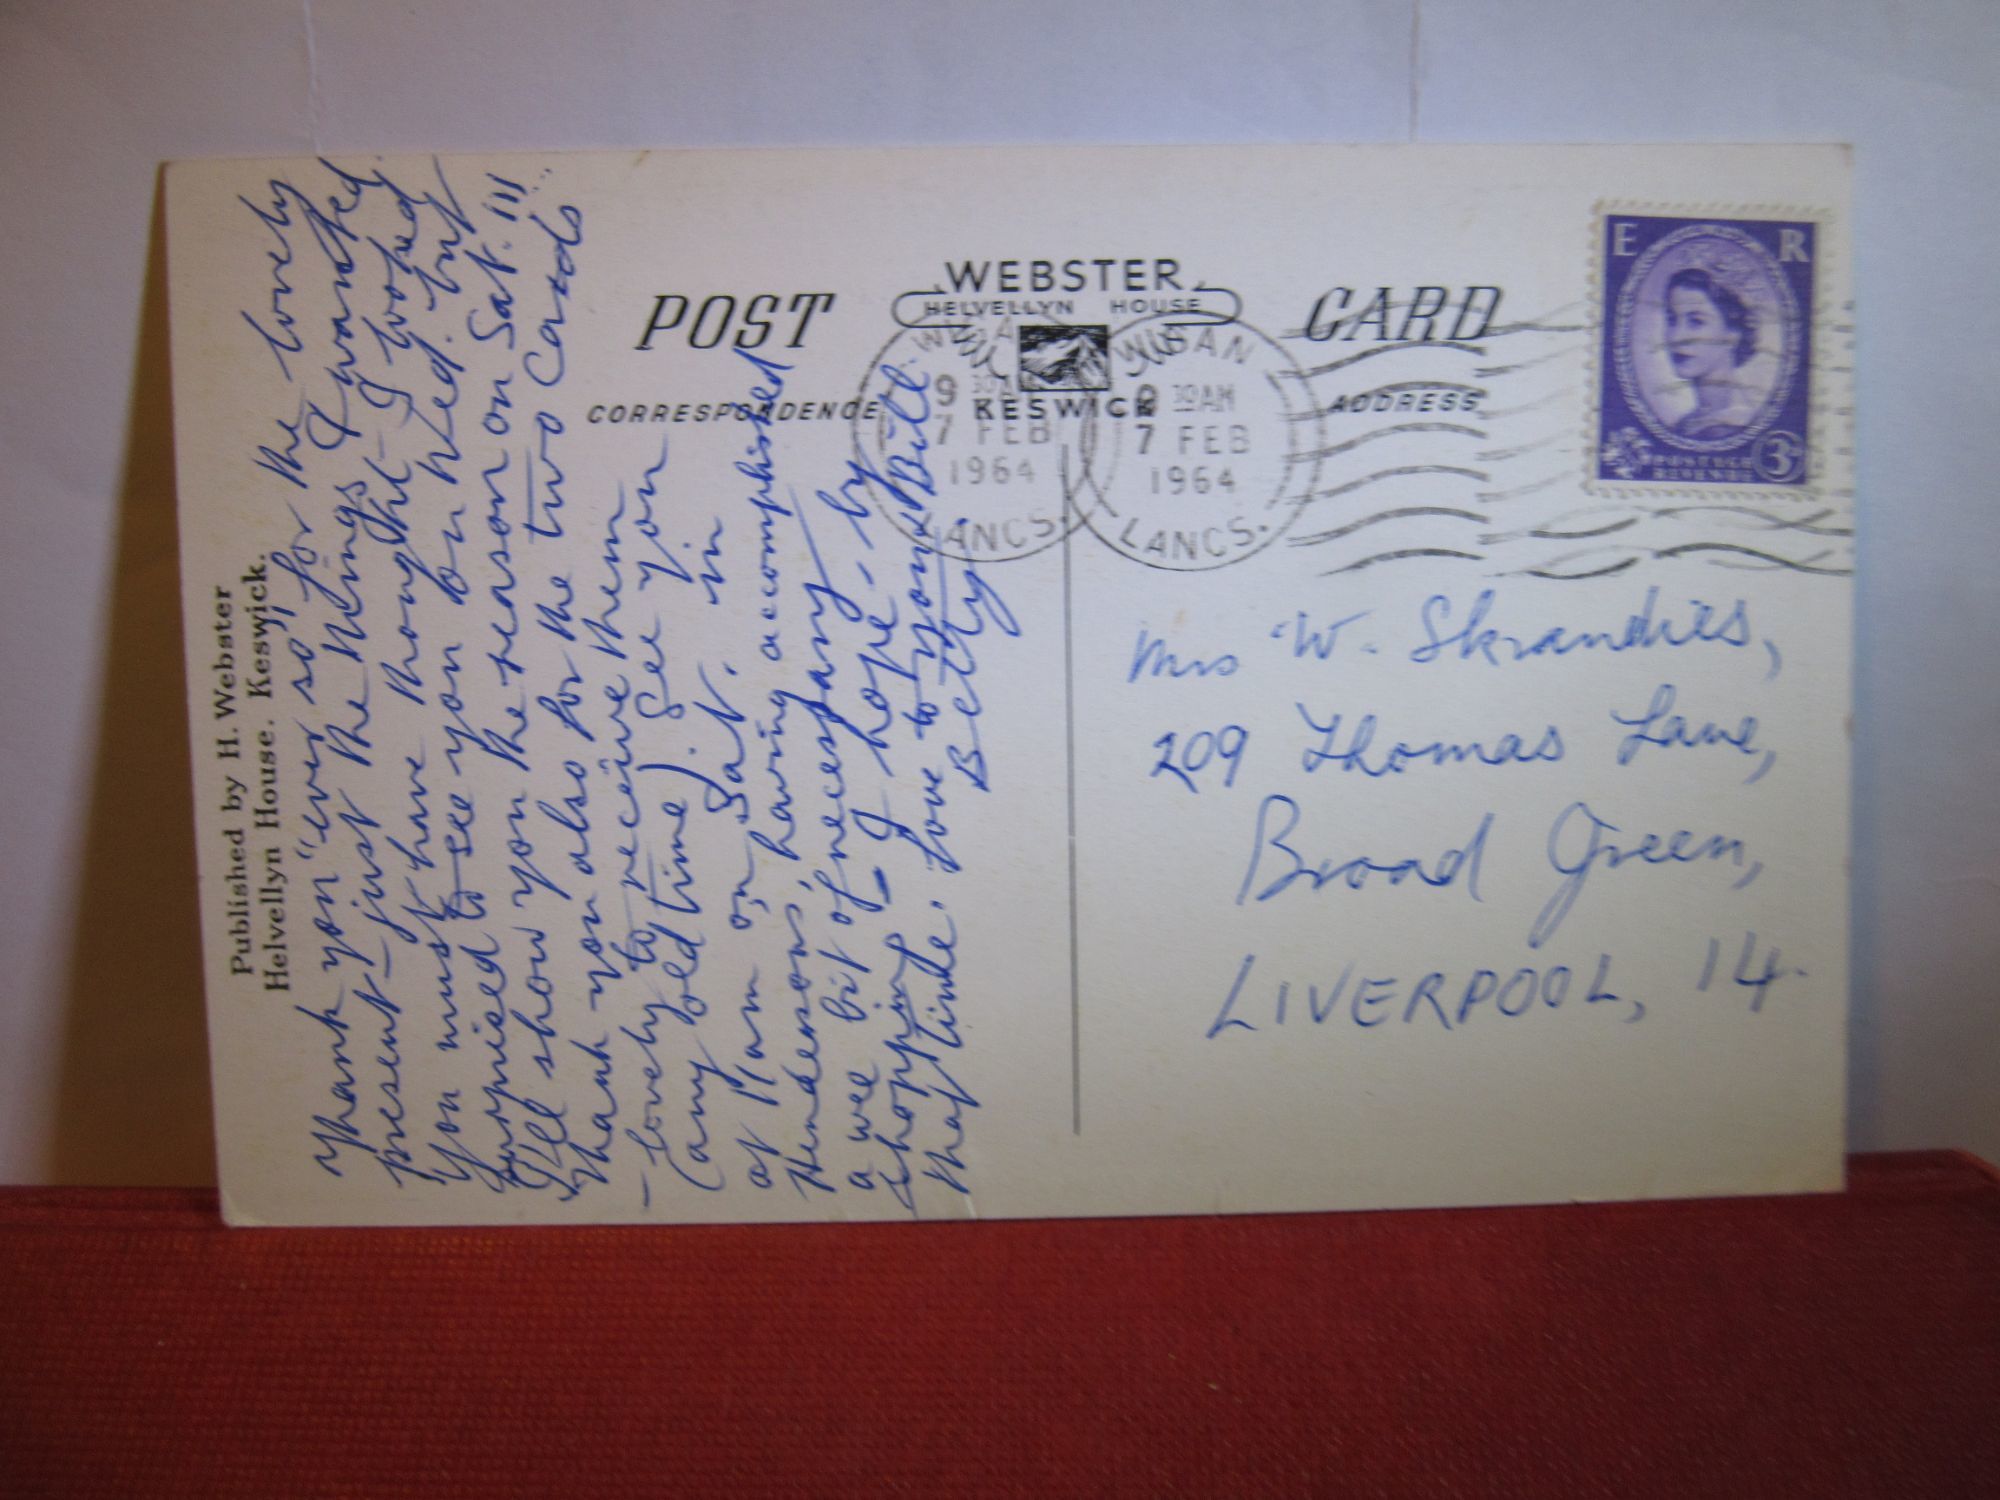 Published by H. Webster
Helvellyn House. Keswick.
Thank you "ever so" for the lovely
present – just the things I wanted.
You must have thought – I looked
surprised to see you on Wed. but
I'll show you the reason on Sat. !!!
Thank you also for the two cards
– lovely to receive them
(any old time). See you
at 11am on Sat. in
Hendersons, having accomplished
a wee bit of necessary
shopping – I hope – by
that time. Love to you & Bill.
Betty
POST CARD
WEBSTER
HELVELLYN HOUSE
KESWICK
CORRESPONDENCE
ADDRESS
WIGAN
9 30 AM
7 FEB
1964
LANCS.
WIGAN
9 30 AM
7 FEB
1964
LANCS.
E R
POSTAGE
REVENUE
3D
Mrs W. Skrandies,
209 Thomas Lane,
Broad Green,
LIVERPOOL, 14.